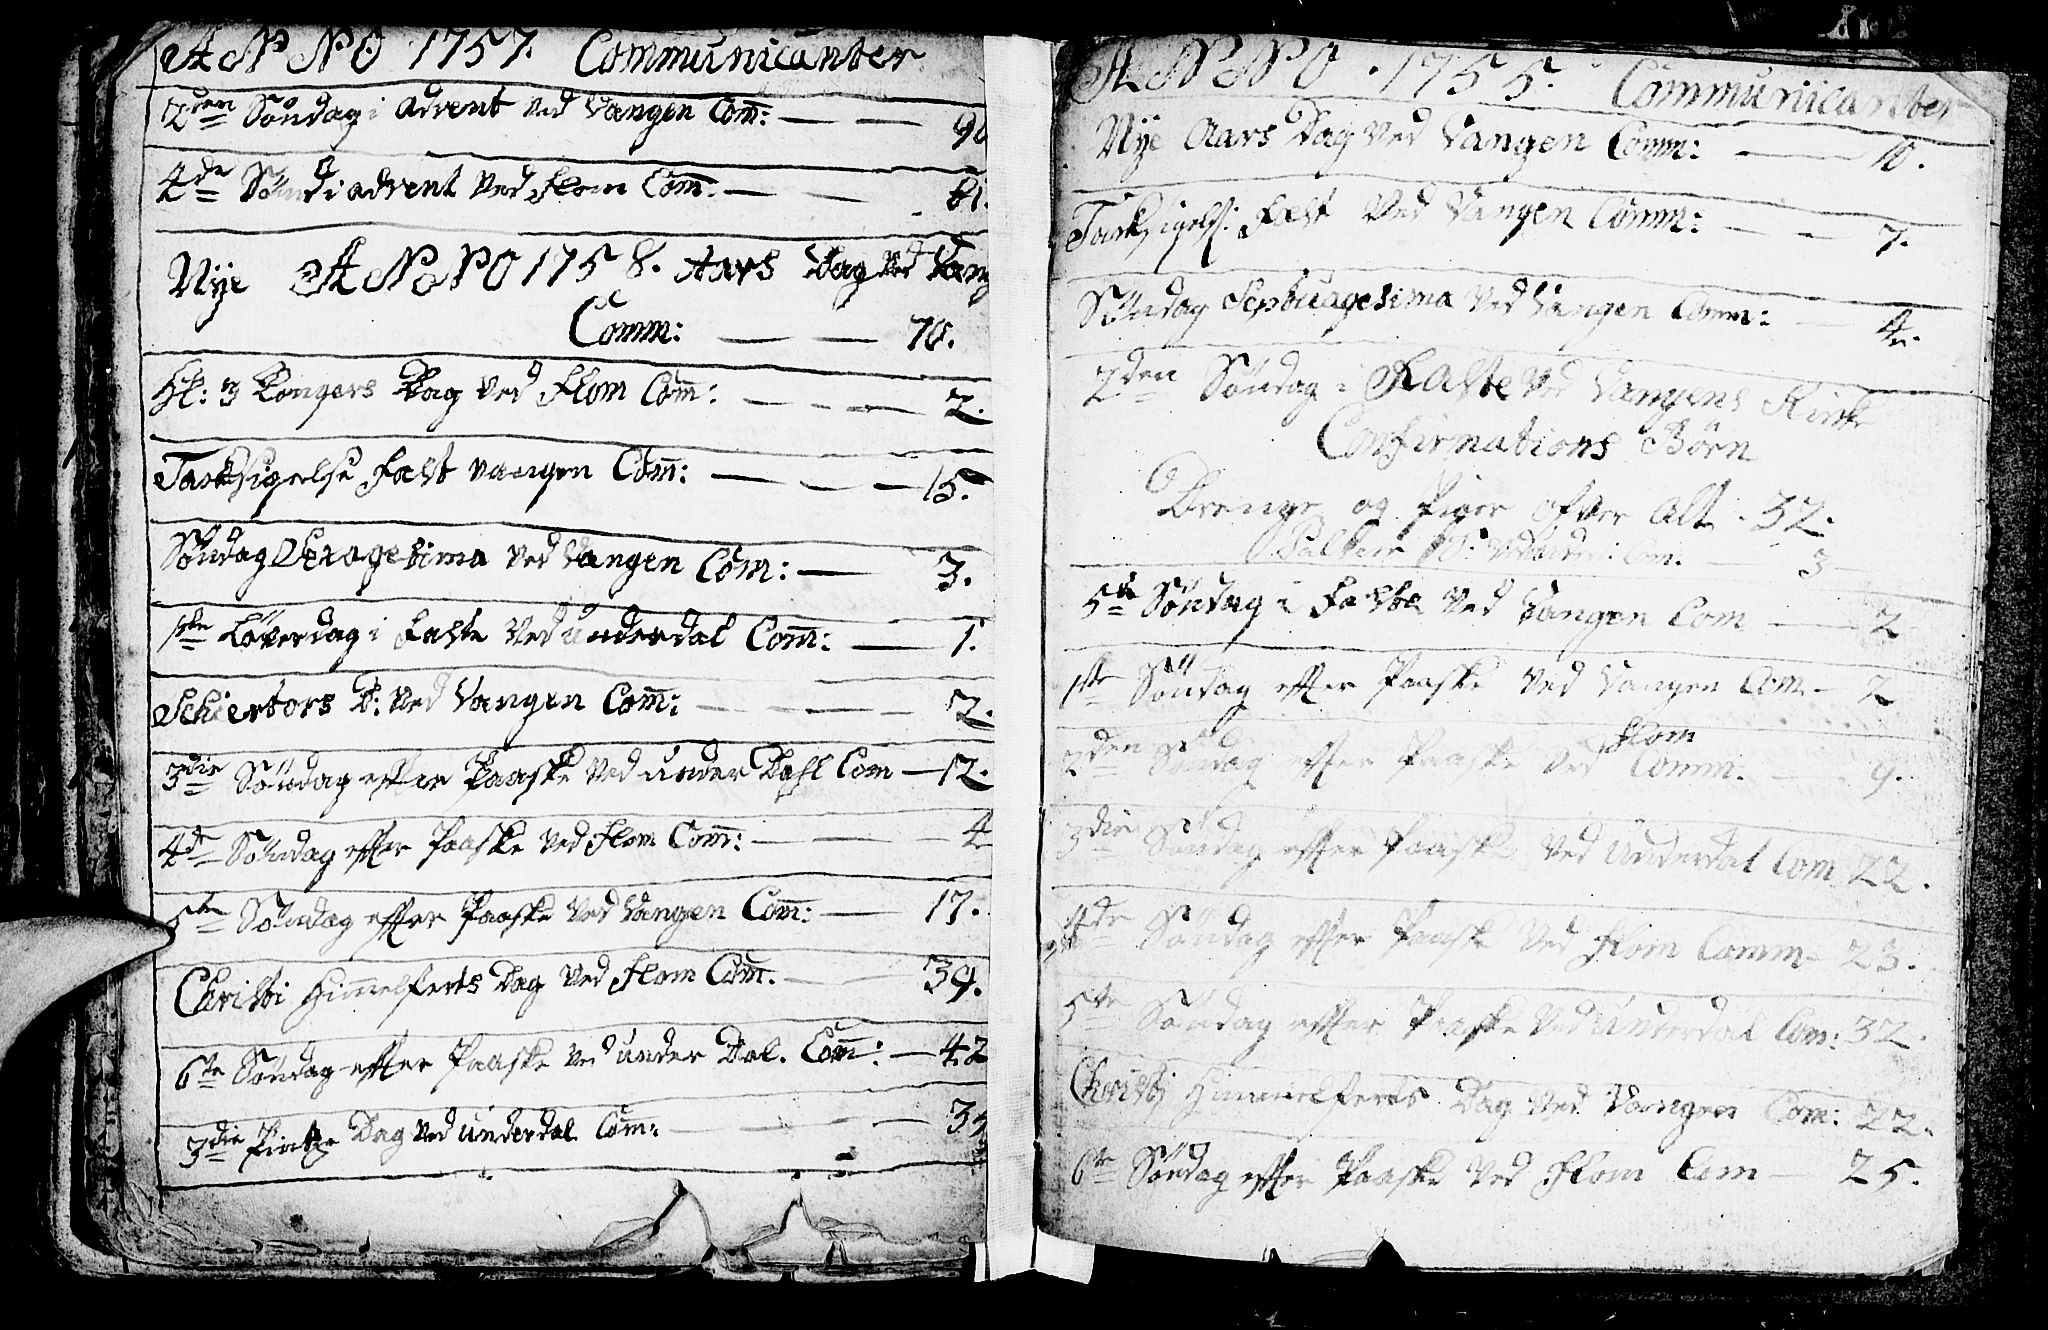 ANNO 1757. Communicanter
2den Søndag i Advent ved Vangen Com̄: — — 90
4de Sønd i advent ved Flom Com̄. — — 81.
Nye ANNO 1758. Aars Dag ved Vang
Comm: — — 70.
Hl: 3 Kongers Dag ved Flom Com̄: — — — 2.
Taksigelse Fæst vangen Com̄: — — — 15.
Søndag Sexagesima ved Vangen Com̄: — 3.
1ste Løverdag i Faste ved Underdal Com̄: — 1.
Schiertors D: ved Vangen Com̄: — — — 2.
3die Søndag effter Paaske ved under Dahl Com — 12.
4de Søndag effter Paaske ved Flom Com̄: — — 4
5te Søndag effter Paaske ved Vangen Com̄: — 17.
Christi Himmelferts Dag ved Flom Com̄. — 39.
6te Søndag effter Paaske ved under Dal. Com̄: — 42
3die Pintze Dag ved Underdal Com̄: — — — 35
ANNO. 1755. Communicanter
Nye Aars Dag ved Vangen Comm: — — 10.
Taksigels: Fæst ved Vangen Comm: — — 7.
Søndag Septuagesima ved Vangen Comm: — 4.
2den Søndag i Faste ved Vangens Kirke
Confirmations Børn
Drenge og Piger ofver Alt. 32.
3
5te Søndag i Faste ved Vangen Com — 2
1ste Søndag effter Paaske ved Vangen Com — 2
2den Søndag effter Paaske ved Flom Comm. — 9.
3die Søndag effter Paaske ved Underdal Com 22.
4de Søndag effter Paaske ved Flom Comm — 23.
5te Søndag effter Paaske ved Underdal Com: 32.
Christi Himmelferts Dag ved Vangen Com: 22.
6te Søndag effter Paaske ved Flom Com — 25.